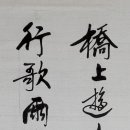 橋上遊
行歌雨